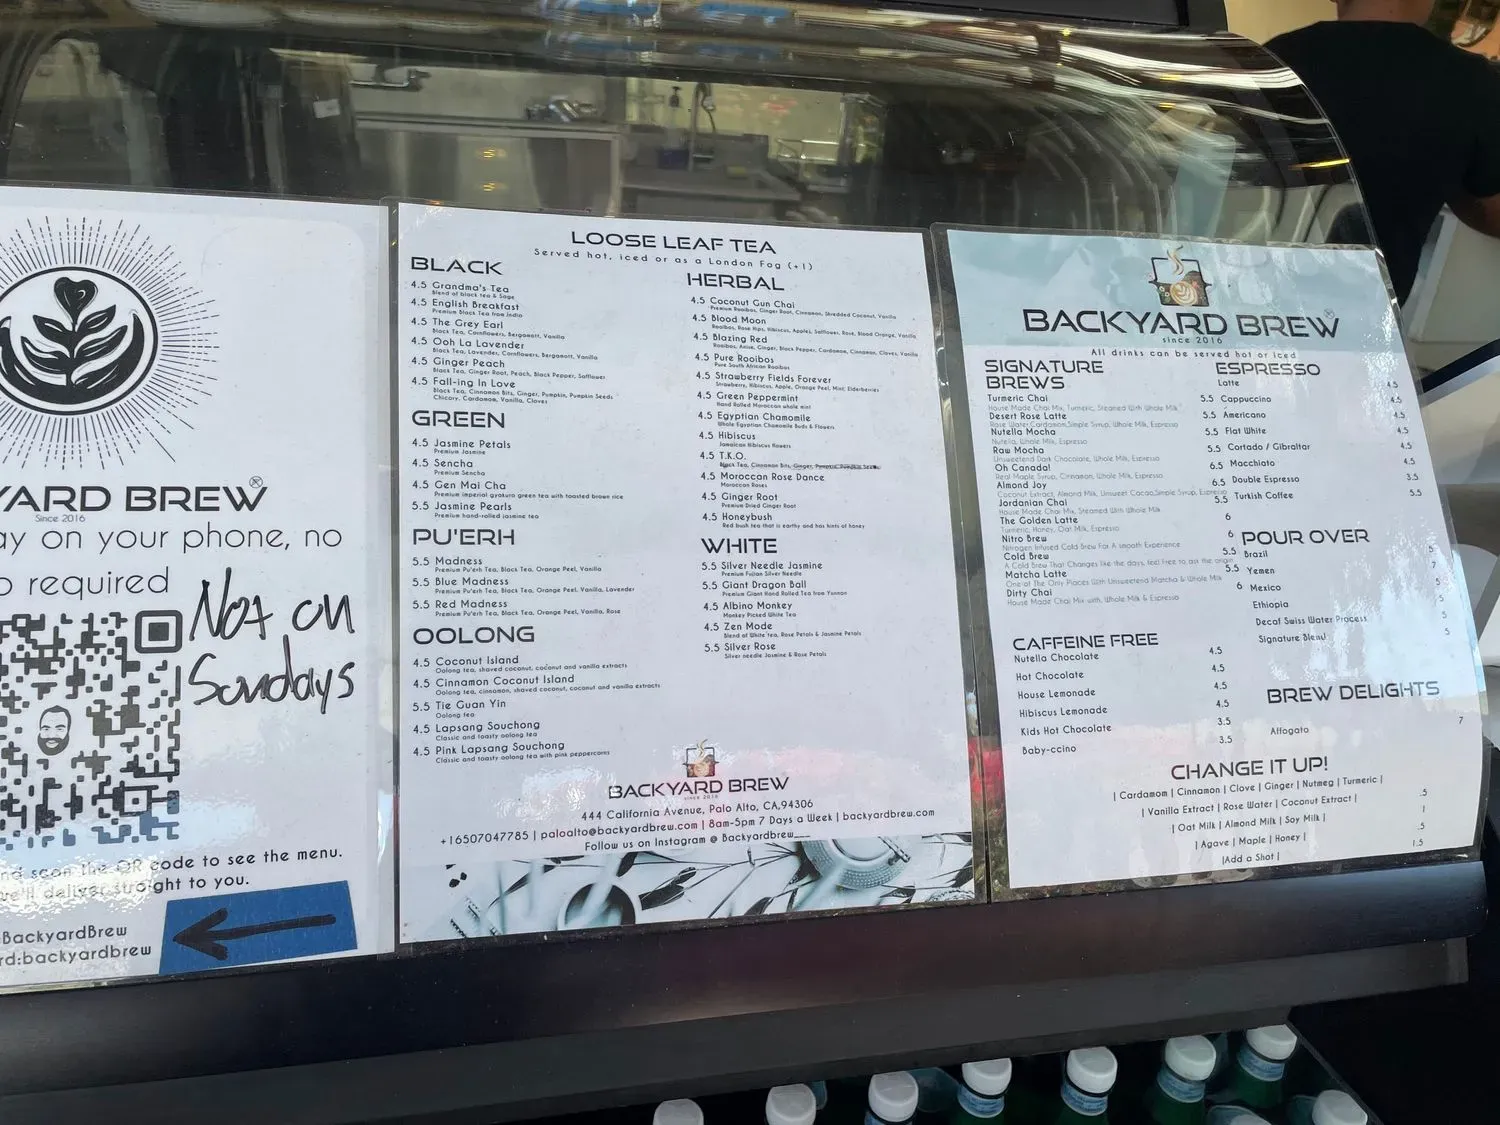 YARD BREW®
Since 2016
ay on your phone, no
required
Not on
Sundays
nd scan the QR code to see the menu.
we'll deliver straight to you.
BackyardBrew
rd:backyardbrew
LOOSE LEAF TEA
Served hot, iced or as a London Fog (+1)
BLACK
4.5 Grandma's Tea
Blend of black tea & Sage
4.5 English Breakfast
Premium Black Tea from India
4.5 The Grey Earl
Black Tea, Cornflowers, Bergamott, Vanilla
4.5 Ooh La Lavender
Black Tea, Lavender, Cornflowers, Bergamott, Vanilla
4.5 Ginger Peach
Black Tea, Ginger Root, Peach, Black Pepper, Safflower
4.5 Fall-ing In Love
Black Tea, Cinnamon Bits, Ginger, Pumpkin, Pumpkin Seeds
Chicory, Cardamom, Vanilla, Cloves
GREEN
4.5 Jasmine Petals
Premium Jasmine
4.5 Sencha
Premium Sencha
4.5 Gen Mai Cha
Premium imperial gyokuro green tea with toasted brown rice
5.5 Jasmine Pearls
Premium hand-rolled jasmine tea
PU'ERH
5.5 Madness
Premium Pu'erh Tea, Black Tea, Orange Peel, Vanilla
5.5 Blue Madness
Premium Pu'erh Tea, Black Tea, Orange Peel, Vanilla, Lavender
5.5 Red Madness
Premium Pu'erh Tea, Black Tea, Orange Peel, Vanilla, Rose
OOLONG
4.5 Coconut Island
Oolong tea, shaved coconut, coconut and vanilla extracts
4.5 Cinnamon Coconut Island
Oolong tea, cinnamon, shaved coconut, coconut and vanilla extracts
5.5 Tie Guan Yin
Oolong tea
4.5 Lapsang Souchong
Classic and toasty oolong tea
4.5 Pink Lapsang Souchong
Classic and toasty oolong tea with pink peppercorns
HERBAL
4.5 Coconut Gun Chai
Premium Rooibos, Ginger Root, Cinnamon, Shredded Coconut, Vanilla
4.5 Blood Moon
Rooibos, Rose Hips, Hibiscus, Apples, Safflower, Rose, Blood Orange, Vanilla
4.5 Blazing Red
Rooibos, Anise, Ginger, Black Pepper, Cardamom, Cinnamon, Cloves, Vanilla
4.5 Pure Rooibos
Pure South African Rooibos
4.5 Strawberry Fields Forever
Strawberry, Hibiscus, Apple, Orange Peel, Mint, Elderberries
4.5 Green Peppermint
Hand Rolled Moroccan whole mint
4.5 Egyptian Chamomile
Whole Egyptian Chamomile Buds & Flowers
4.5 Hibiscus
Jamaican Hibiscus flowers
4.5 T.K.O.
Black Tea, Cinnamon Bits, Ginger, Pumpkin, Pumpkin Seeds
4.5 Moroccan Rose Dance
Moroccan Roses
4.5 Ginger Root
Premium Dried Ginger Root
4.5 Honeybush
Red bush tea that is earthy and has hints of honey
WHITE
5.5 Silver Needle Jasmine
Premium Fujian Silver Needle
5.5 Giant Dragon Ball
Premium Giant Hand Rolled Tea from Yunnan
4.5 Albino Monkey
Monkey Picked White Tea
4.5 Zen Mode
Blend of White tea, Rose Petals & Jasmine Petals
5.5 Silver Rose
Silver needle Jasmine & Rose Petals
BACKYARD BREW
since 2016
444 California Avenue, Palo Alto, CA,94306
+16507047785 | paloalto@backyardbrew.com | 8am-5pm 7 Days a Week | backyardbrew.com
Follow us on Instagram @ Backyardbrew___
BACKYARD BREW®
since 2016
All drinks can be served hot or iced
SIGNATURE
BREWS
Turmeric Chai 5.5
House Made Chai Mix, Turmeric, Steamed With Whole Milk
Desert Rose Latte 5.5
Rose Water,Cardamom,Simple Syrup, Whole Milk, Espresso
Nutella Mocha 5.5
Nutella, Whole Milk, Espresso
Raw Mocha 5.5
Unsweetend Dark Chocolate, Whole Milk, Espresso
Oh Canada! 6.5
Real Maple Syrup, Cinnamon, Whole Milk, Espresso
Almond Joy 6.5
Coconut Extract, Almond Milk, Unsweet Cacao,Simple Syrup, Espresso
Jordanian Chai 5.5
House Made Chai Mix, Steamed With Whole Milk
The Golden Latte 6
Turmeric, Honey, Oat Milk, Espresso
Nitro Brew 6
Nitrogen Infused Cold Brew For A smooth Experience
Cold Brew 5.5
A Cold Brew That Changes like the days, feel free to ask the origin
Matcha Latte 5.5
One of The Only Places With Unsweetend Matcha & Whole Milk
Dirty Chai 6
House Made Chai Mix with, Whole Milk & Espresso
CAFFEINE FREE
Nutella Chocolate 4.5
Hot Chocolate 4.5
House Lemonade 4.5
Hibiscus Lemonade 4.5
Kids Hot Chocolate 3.5
Baby-ccino 3.5
ESPRESSO
Latte 4.5
Cappuccino 4.5
Americano
Flat White 4.5
Cortado / Gibraltar 4.5
Macchiato 4.5
Double Espresso 3.5
Turkish Coffee 5.5
POUR OVER
Brazil 5
Yemen 7
Mexico 5
Ethiopia 5
Decaf Swiss Water Process 5
Signature Blend 5
BREW DELIGHTS
Affogato 7
CHANGE IT UP!
| Cardamom | Cinnamon | Clove | Ginger | Nutmeg | Turmeric |
| Vanilla Extract | Rose Water | Coconut Extract | .5
| Oat Milk | Almond Milk | Soy Milk | 1
| Agave | Maple | Honey | .5
|Add a Shot | 1.5